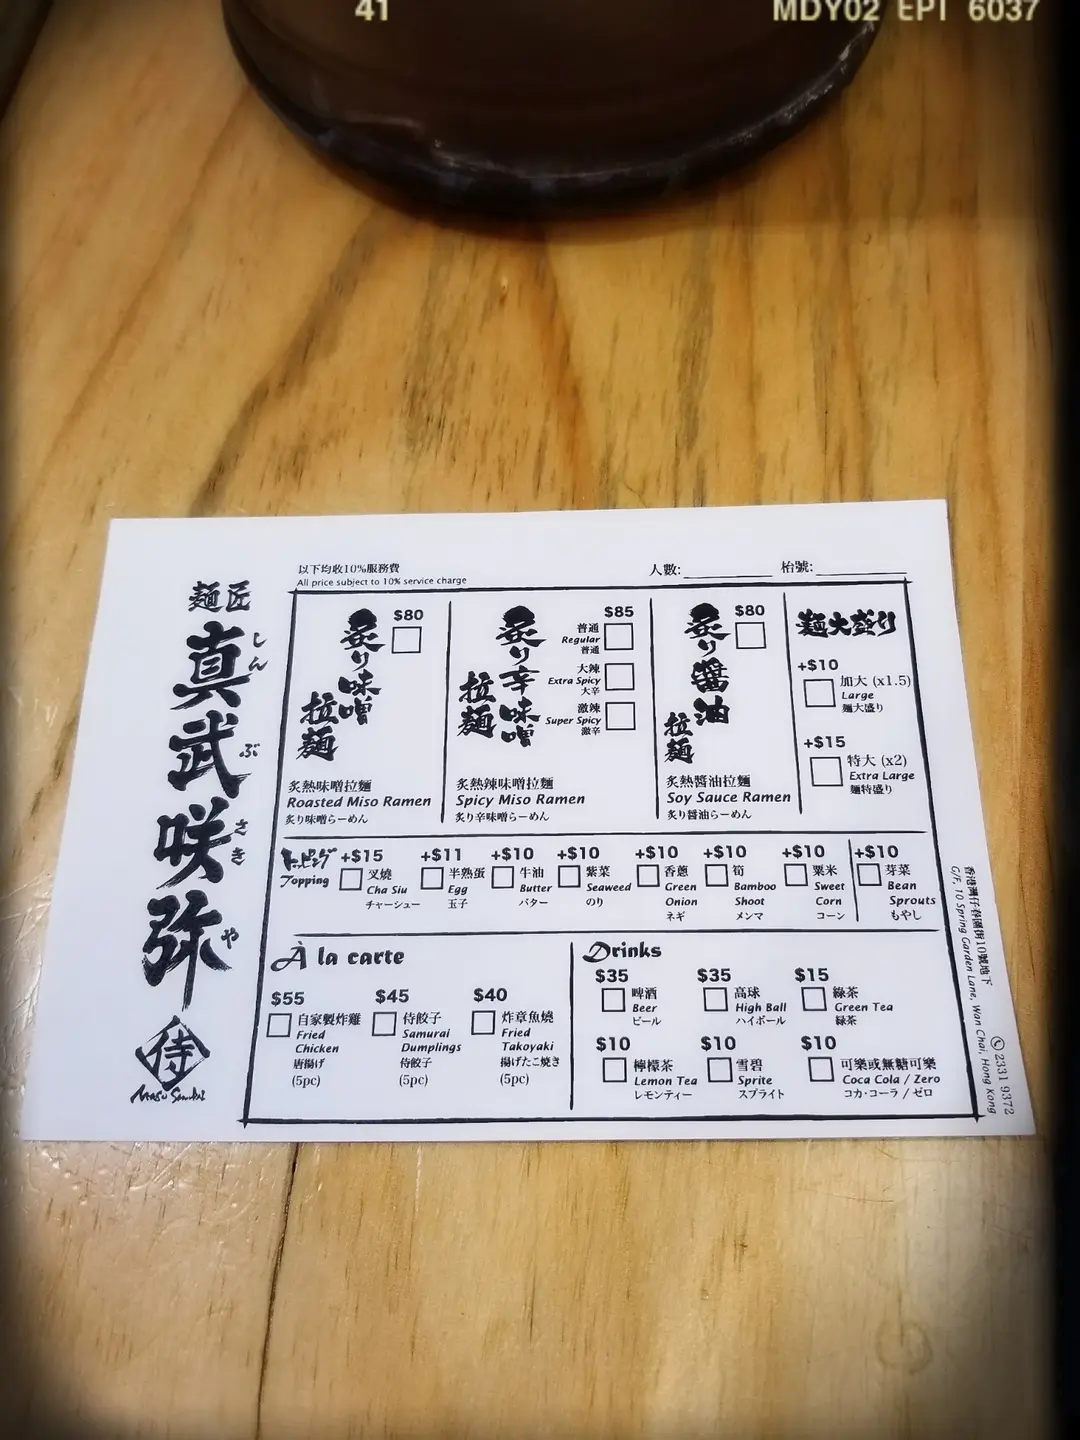 41
MDY02 EPI 6037
以下均收10%服務費
All price subject to 10% service charge
人數:
枱號:
麺匠
真武咲弥
しん
ぶ
さき
や
侍
炙り味噌
拉麺
$80
炙熱味噌拉麵
Roasted Miso Ramen
炙り味噌らーめん
炙り辛味噌
拉麺
$85
普通
Regular
普通
大辣
Extra Spicy
大辛
激辣
Super Spicy
激辛
炙熱辣味噌拉麵
Spicy Miso Ramen
炙り辛味噌らーめん
炙り醤油
拉麺
$80
炙熱醬油拉麵
Soy Sauce Ramen
炙り醤油らーめん
麺大盛り
+$10
加大 (x1.5)
Large
麺大盛り
+$15
特大 (x2)
Extra Large
麺特盛り
トッピング
Topping
+$15
叉燒
Cha Siu
チャーシュー
+$11
半熟蛋
Egg
玉子
+$10
牛油
Butter
バター
+$10
紫菜
Seaweed
のり
+$10
香蔥
Green
Onion
ネギ
+$10
筍
Bamboo
Shoot
メンマ
+$10
粟米
Sweet
Corn
コーン
+$10
芽菜
Bean
Sprouts
もやし
À la carte
$55
自家製炸雞
Fried
Chicken
唐揚げ
(5pc)
$45
侍餃子
Samurai
Dumplings
侍餃子
(5pc)
$40
炸章魚燒
Fried
Takoyaki
揚げたこ焼き
(5pc)
Drinks
$35
啤酒
Beer
ビール
$35
高球
High Ball
ハイボール
$15
綠茶
Green Tea
緑茶
$10
檸檬茶
Lemon Tea
レモンティー
$10
雪碧
Sprite
スプライト
$10
可樂或無糖可樂
Coca Cola / Zero
コカ・コーラ / ゼロ
香港灣仔春園街10號地下
G/F, 10 Spring Garden Lane, Wan Chai, Hong Kong
2331 9372